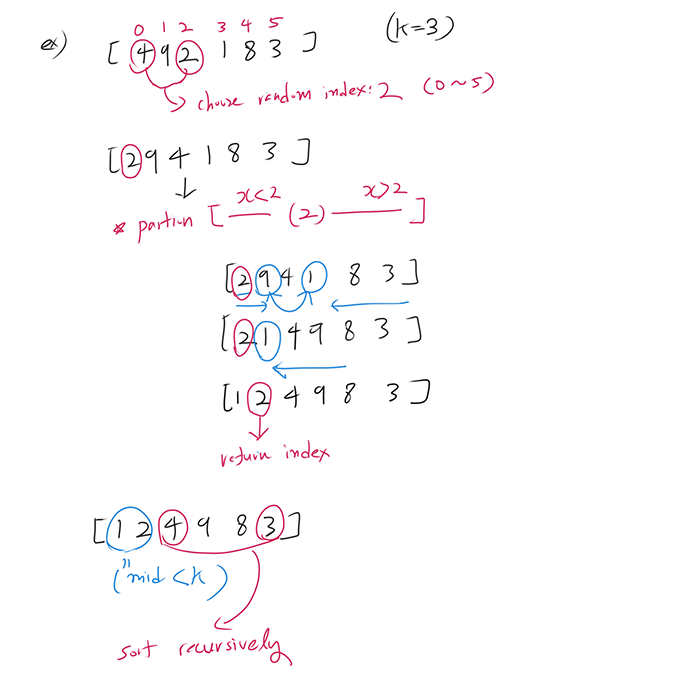 0 1 2 3 4 5
ex) [ 4 9 2 1 8 3 ] (k=3)
choose random index: 2 (0~5)
[ 2 9 4 1 8 3 ]
x<2 x>2
* partion [ (2) ]
[ 2 9 4 1 8 3 ]
[ 2 1 4 9 8 3 ]
[ 1 2 4 9 8 3 ]
return index
[ 1 2 4 9 8 3 ]
( mid < k )
sort recursively